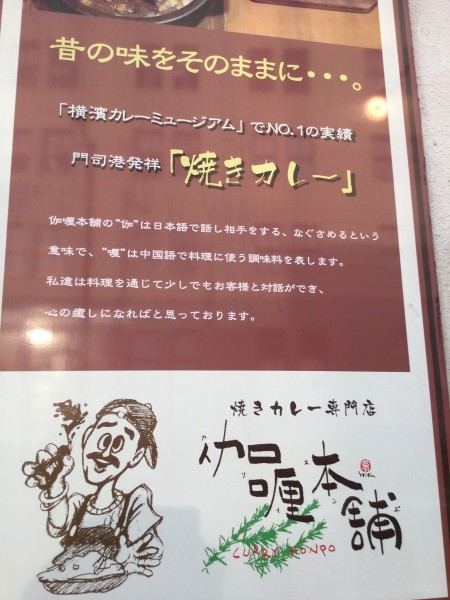 昔の味をそのままに・・・。
「横濱カレーミュージアム」でNO.1の実績
門司港発祥「焼きカレー」
伽喱本舗の"伽"は日本語で話し相手をする、なぐさめるという
意味で、"喱"は中国語で料理に使う調味料を表します。
私達は料理を通じて少しでもお客様と対話ができ、
心の癒しになればと思っております。
焼きカレー専門店
伽喱本舗
CURRY HONPO